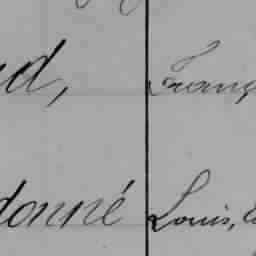 d, Franç
donné Louis,